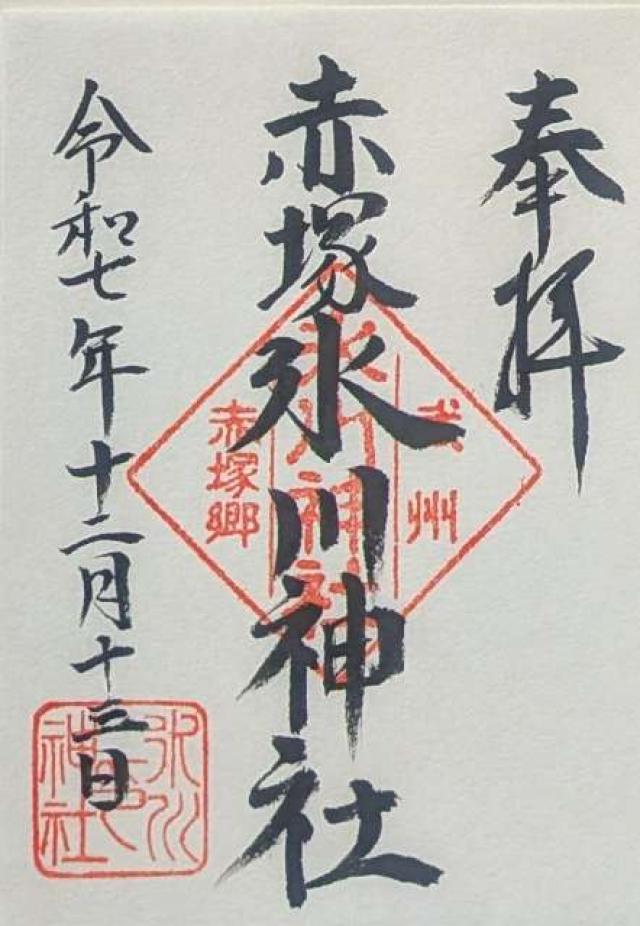 奉拝
武州
氷川神社
赤塚郷
赤塚氷川神社
令和七年十二月十三日
氷川
神社